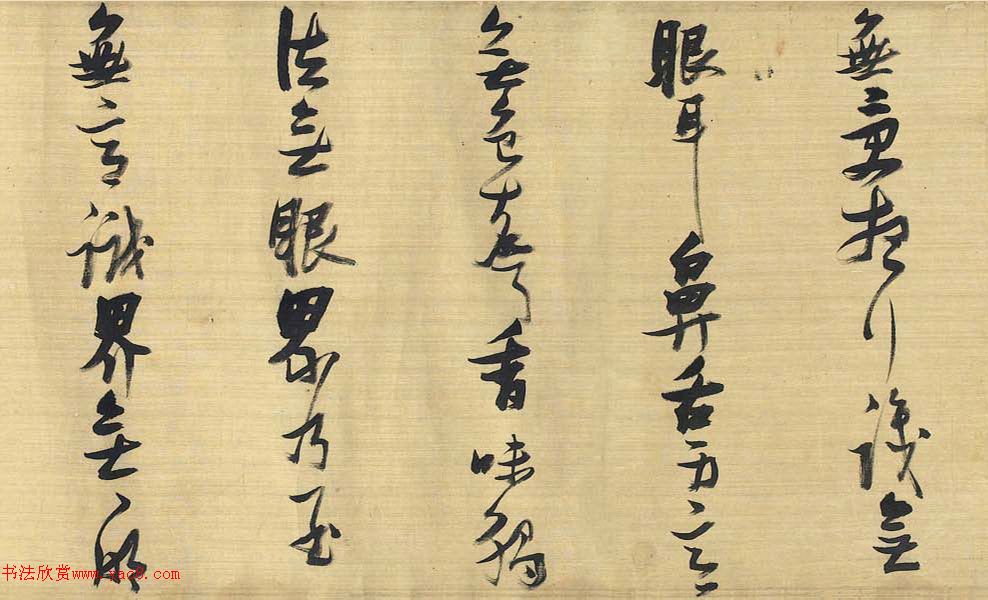 無受想行識無
眼耳鼻舌身意
無色聲香味觸
法無眼界乃至
無意識界無無明
书法欣赏www.yac8.com